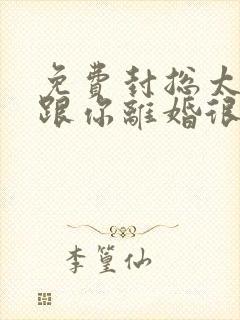 免費封總太
跟你離婚很
李篁仙